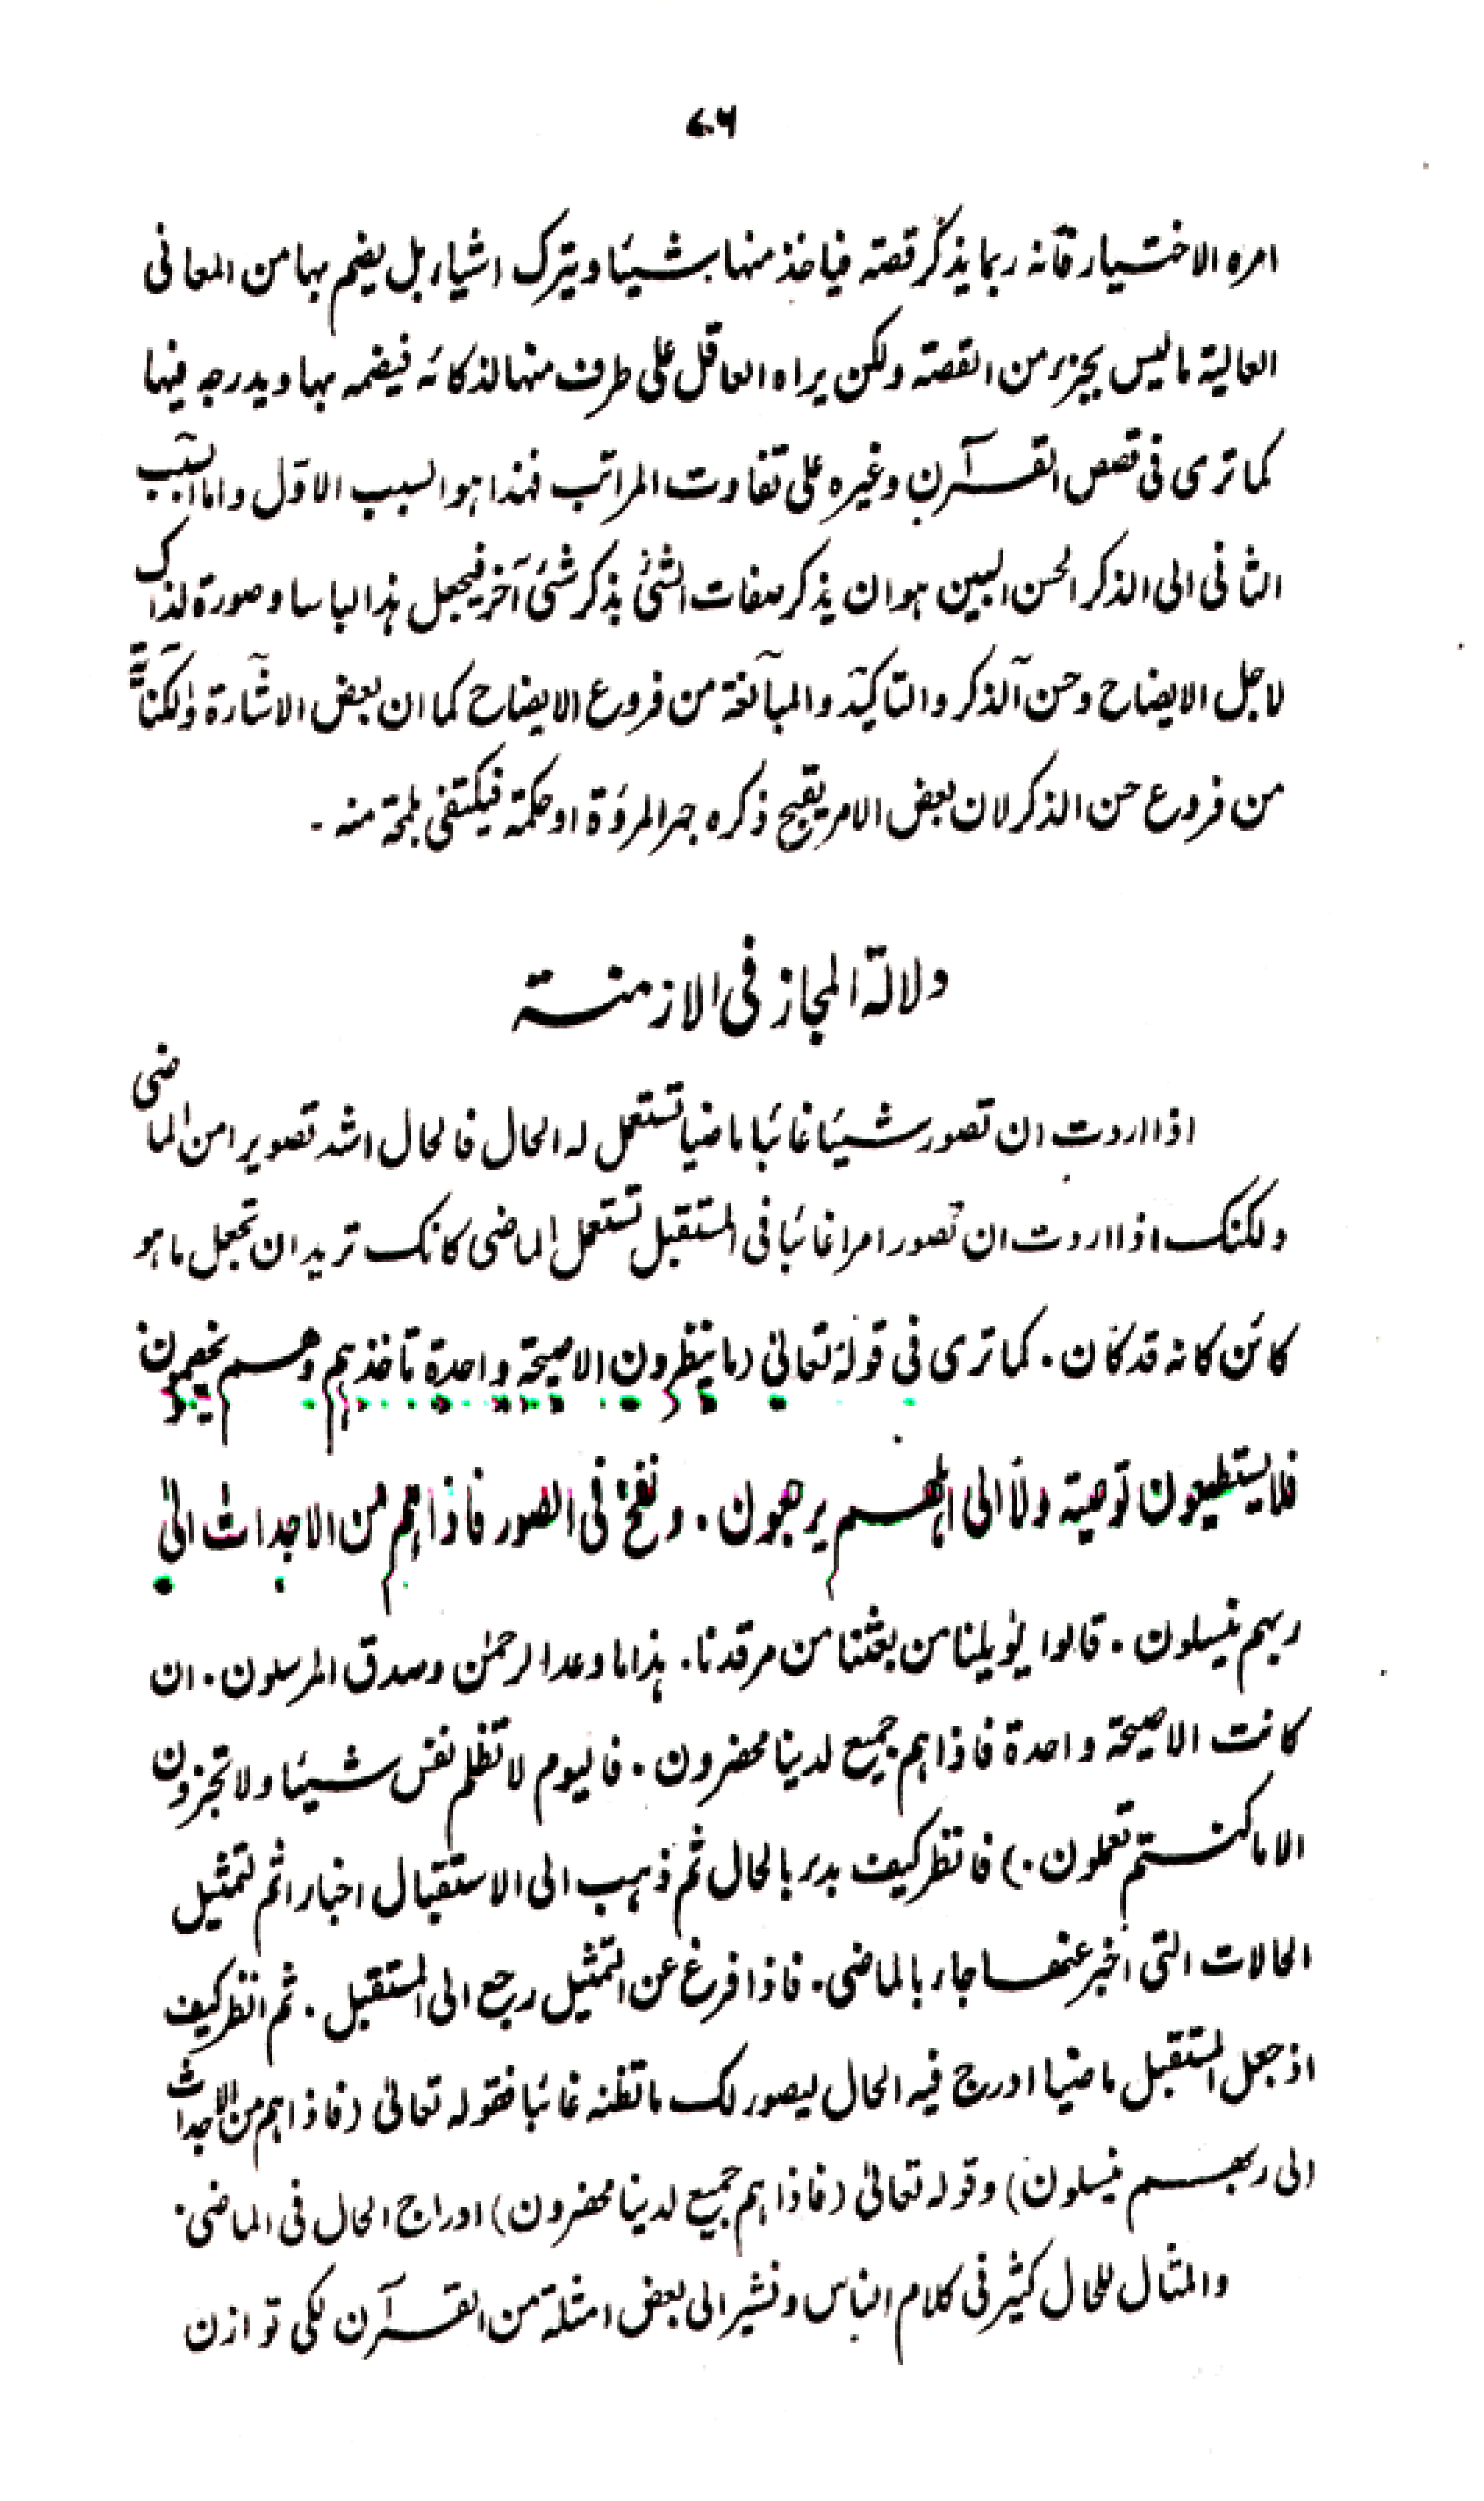 ۷۶
امره الاختیار فانه ربما یذکر قصته فیاخذ منها شیئا ویترک اشیاء بل یضم بها من المعانی
العالیة مالیس بجزء من القصته ولکن یراه العاقل علی طرف منها لذکائه فیضمه بها ویدرجه فیها
کما تری فی قصص القرآن وغیره علی تفاوت المراتب فهذا هو السبب الاوّل واما السبب
الثانی الی الذکر الحسن المبین هو ان یذکر صفات الشئ بذکر شئ آخر فیجعل هذا لباسا وصورة لذاک
لاجل الایضاح وحسن الذکر والتاکید والمبالغة من فروع الایضاح کما ان بعض الاشارة والکنایة
من فروع حسن الذکر لان بعض الامر یقبح ذکره جهرا لمروّة او حکمة فیکتفی بلمحة منه ۔
دلالة المجاز فی الازمنة
اذا اردت ان تصور شیئا غائبا ماضیا تستعمل له الحال فالحال اشد تصویرا من الماضی
ولکنک اذا اردت ان تصور امرا غائبا فی المستقبل تستعمل الماضی کانک ترید ان تجعل ما هو
کائن کانه قد کان ۔ کما تری فی قوله تعالیٰ (ما ینظرون الا صیحة واحدة تاخذهم وهم یخصمون
فلا یستطیعون توصیة ولا الی اهلهم یرجعون ۔ ونفخ فی الصور فاذا هم من الاجداث الیٰ
ربهم ینسلون ۔ قالوا یٰویلنا من بعثنا من مرقدنا ۔ هذا ما وعد الرحمٰن وصدق المرسلون ۔ ان
کانت الا صیحة واحدة فاذا هم جمیع لدینا محضرون ۔ فالیوم لا تظلم نفس شیئا ولا تجزون
الا ما کنتم تعملون ۔) فانظر کیف بدء بالحال ثم ذهب الی الاستقبال اخبارا ثم لتمثیل
الحالات التی اخبر عنها جاء بالماضی ۔ فاذا فرغ عن التمثیل رجع الی المستقبل ۔ ثم انظر کیف
اذ جعل المستقبل ماضیا ادرج فیه الحال لیصور لک ما تظنه غائبا فقوله تعالیٰ (فاذا هم من الاجداث
الی ربهم ینسلون) وقوله تعالیٰ (فاذا هم جمیع لدینا محضرون) ادراج الحال فی الماضی ۔
والمثال للحال کثیر فی کلام الناس ونشیر الی بعض امثلة من القرآن لکی توازن